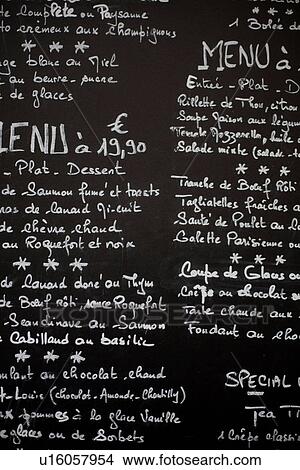 te complète ou Paysanne
to crémeux aux champignons
* * *
age blanc au Miel
au beurre-sucre
de glaces
MENU à 19,90 €
- Plat - Dessert
de Saumon fumé et toasts
nas de canard Mi-cuit
de chèvre chaud
au Roquefort et noix
* * *
de Canard doré au Thym
de Bœuf Rôti sauce Roquefort
- Scandinave au Saumon
Cabillaud au basilic
* * *
ulant au chocolat chaud
t-Louis (chocolat-Amande-Chantilly)
aux pommes à la glace Vanille
de glaces ou de Sorbets
1 Bolée de
MENU à
Entrée - Plat - D
Rillette de Thon, citron
Soupe Maison aux légum
Mozzarella, huile
Salade mixte (salade-t
* * *
Tranche de Bœuf Rôti
Tagliatelles fraîches a
Sauté de Poulet au
Galette Parisienne ou
* * *
Coupe de Glaces ou
Crêpe au chocolat
Tarte chaude aux
Fondant au chocol
SPECIAL
TEA TI
1 Crêpe classic
fotosearch
u16057954 www.fotosearch.com